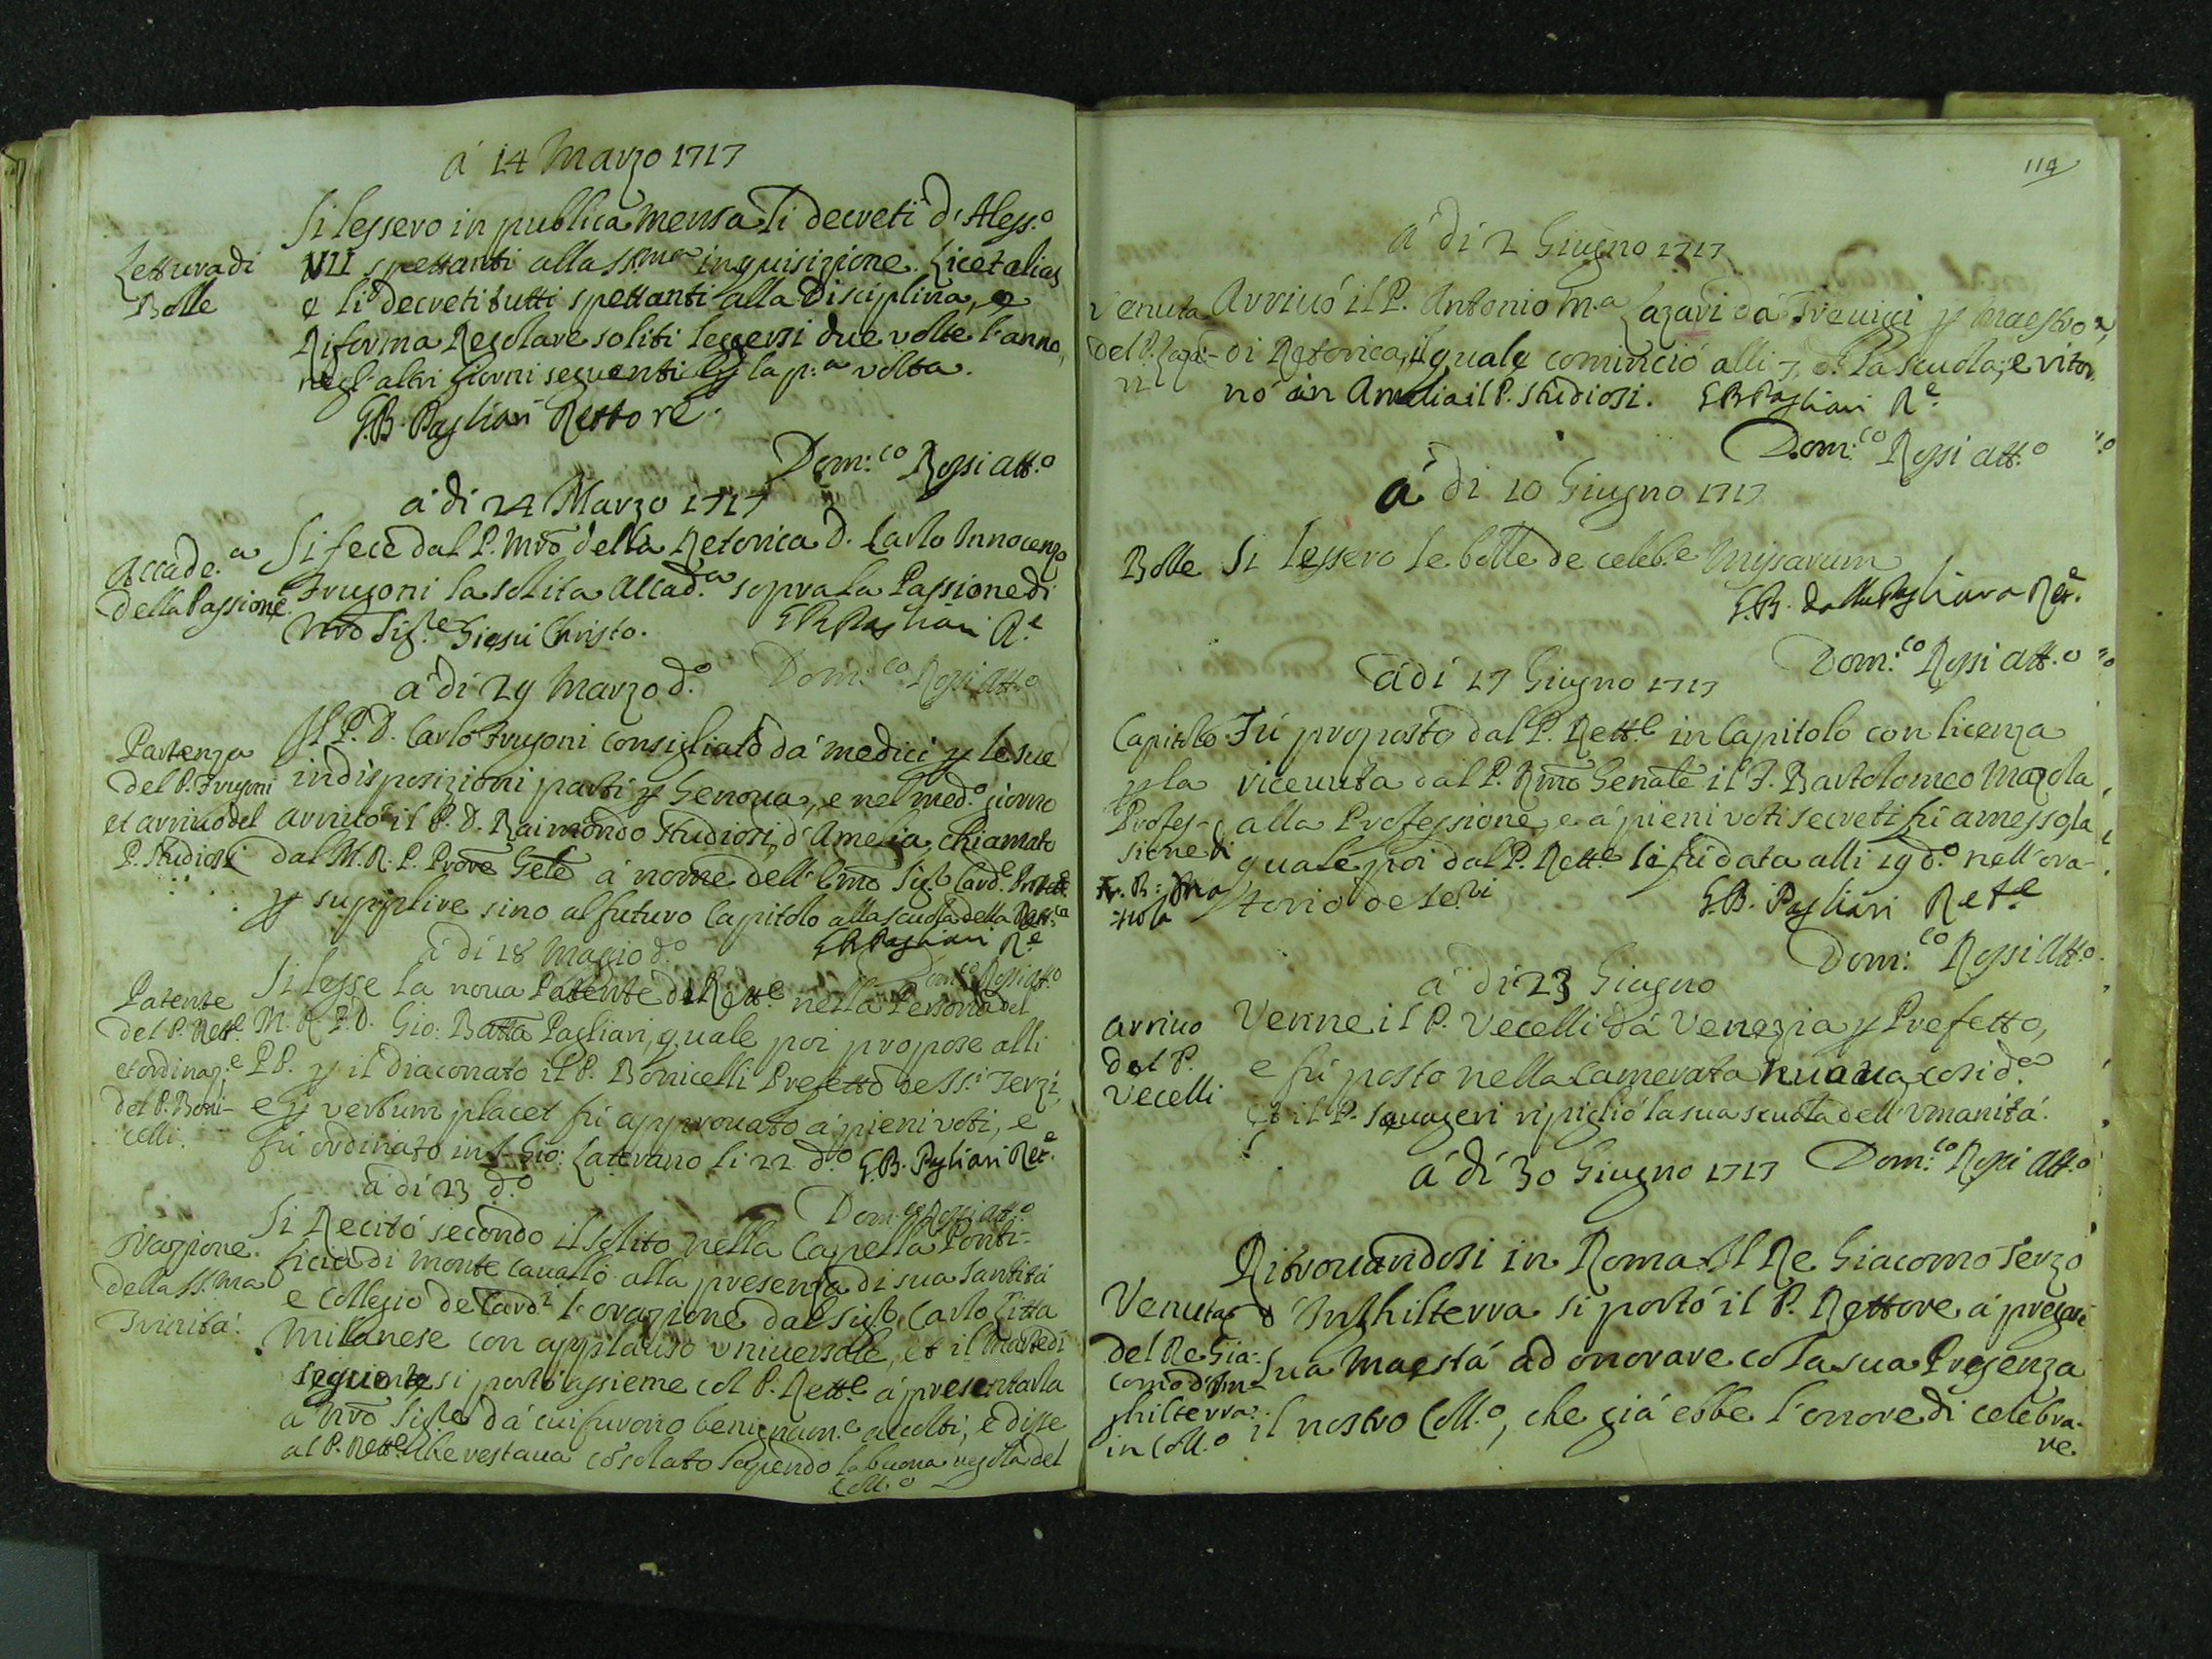 á 14 Marzo 1717
Lettura di
Bolle
Si lessero in publica mensa li decreti d'Aless.o
VII spettanti alla SS.ma inquisizione. Licet alias
e li decreti tutti spettanti alla Disciplina, e
Riforma Regolare soliti leggersi due volte l'anno,
negl'altri giorni seguenti la p:a volta.
G.B. Pagliari Rettore.
Dom:co Rossi att.o
á di 24 Marzo 1717
Accade.a
della Passione.
Si fece dal P. Mro della Retorica D. Carlo Innocenzo
Frugoni la solita Accad.a sopra la Passione di
Nro Sig.re Giesú Christo.
G B Pagliari R.e
Dom:co Rossi att.o
á di 29 Marzo d.o
Partenza
del P. Frugoni
et arriuo del
P. Studiosi
Il P. D. Carlo Frugoni consigliato dá medici p le sue
indisposizioni partí p Genoua, e nel med.o giorno
arriuó il P. D. Raimondo Studiosi, d'Amelia chiamato
dal M. R. P. Prove Gele á nome dell'Emo Sig.r Card.e
p supplire sino al futuro Capitolo alla scuola della Ret.ca
G B Pagliari R.e
Dom:co Rossi att.o
á di 18 Maggio d.o
Patente
del P. Rett.e
et ordinaz.e
del P. Boni-
celli.
Si lesse la noua Patente di Rett.e nella Persona del
M. R. P. D. Gio: Batta Pagliari, quale poi propose alli
PP. p il diaconato il P. Bonicelli Prefetto de SS.i Terzi,
e p verbum placet fú approuato á pieni voti, e
fú ordinato in S. Gio: Laterano li 22 d.o G.B. Pagliari Ret.e
Dom:co Rossi att.o
á di 23 d.o
Orazione
della SS.ma
Trinitá.
Si Recitó secondo il solito nella Capella Ponti-
ficia di monte cauallo alla presenza di sua Santitá
e Collegio de Card.i l'orazione dal Sig.r Carlo Zitta
Milanese con applauso vniuersale, et il Martedí
seguente si portó assieme col P. Rett.e á presentarla
á Nro Sig.re dá cui furono benignam.e accolti, e disse
al P. Rett.e che restaua cosolato sapendo la buona regola del
Coll.o
114
á di 2 Giugno 1717
Venuta
del P. Laza-
ri
Arriuó il P. Antonio M.a Lazari dá Treuigi p Maestro
di Retorica, il quale cominció alli 7 d.o la scuola; e ritor
nó in Amelia il P. Studiosi. G B Pagliari R.e
Dom:co Rossi att.o
á di 10 Giugno 1717
Bolle
Si lessero le bolle de celeb.e Missarum
G.B. Pagliara Ret.e
Dom:co Rossi att.o
á di 17 Giugno 1717
Capitolo
p la
Profes-
sione di
Fr. B: Ma
zola
Fú proposto dal P. Rett.e in Capitolo con licenza
riceuuta dal P. Rmo Genale il F. Bartolomeo Mazola
alla Professione, e á pieni voti secreti fú amesso, la
quale poi dal P. Rett.e li fú data alli 19 d.o nell'ora-
torio de
G.B. Pagliari Ret.e
Dom:co Rossi Att.o
á di 23 Giugno
arriuo
del P.
Vecelli
Venne il P. Vecelli dá Venezia p Prefetto,
e fú posto nella Camerata nuoua cosí d.a
et il P. Sauageri ripiglió la sua scuola dell'Vmanitá.
Dom:co Rossi att.o
á di 30 Giugno 1717
Venuta
del Re Gia-
como d'In-
ghilterra
in Coll.o
Ritrouandosi in Roma Il Re Giacomo Terzo
d'Inghilterra si portó il P. Rettore á pregare
Sua Maestá ad onorare cola sua Presenza
il nostro Coll.o, che giá ebbe l'onore di celebra-
re.